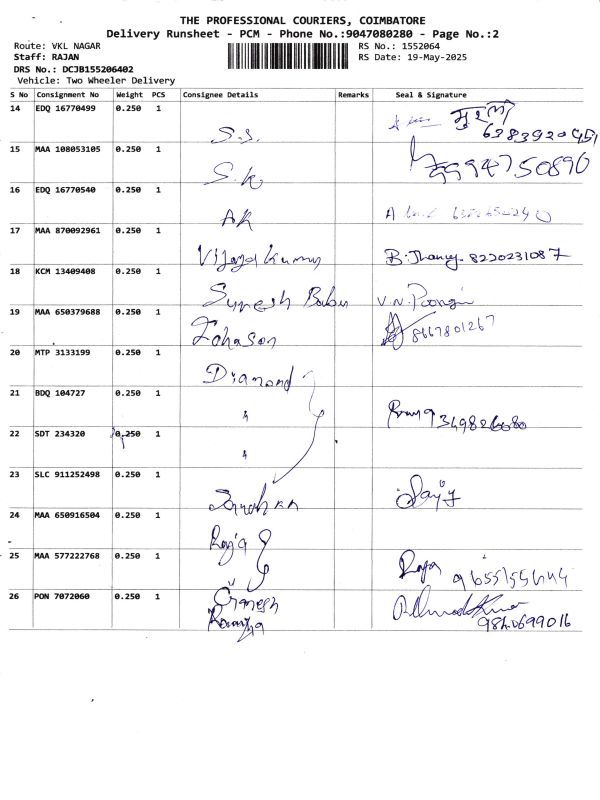 THE PROFESSIONAL COURIERS, COIMBATORE
Delivery Runsheet - PCM - Phone No.:9047080280 - Page No.:2
Route: VKL NAGAR
Staff: RAJAN
DRS No.: DCJB155206402
Vehicle: Two Wheeler Delivery
RS No.: 1552064
RS Date: 19-May-2025
S No Consignment No Weight PCS Consignee Details Remarks Seal & Signature
14 EDQ 16770499 0.250 1
S.S.
6383920451
15 MAA 108053105 0.250 1
S.K
9994750890
16 EDQ 16770540 0.250 1
AK
17 MAA 870092961 0.250 1
Vijayakumar 8220231087
18 KCM 13409408 0.250 1
Suresh Babu V.N.
19 MAA 650379688 0.250 1
Johason 8667801267
20 MTP 3133199 0.250 1
Diamond
21 BDQ 104727 0.250 1
"
22 SDT 234320 0.250 1
"
23 SLC 911252498 0.250 1
24 MAA 650916504 0.250 1
Raja
25 MAA 577222768 0.250 1
Raja
26 PON 7072060 0.250 1
Ganesh
9840699016